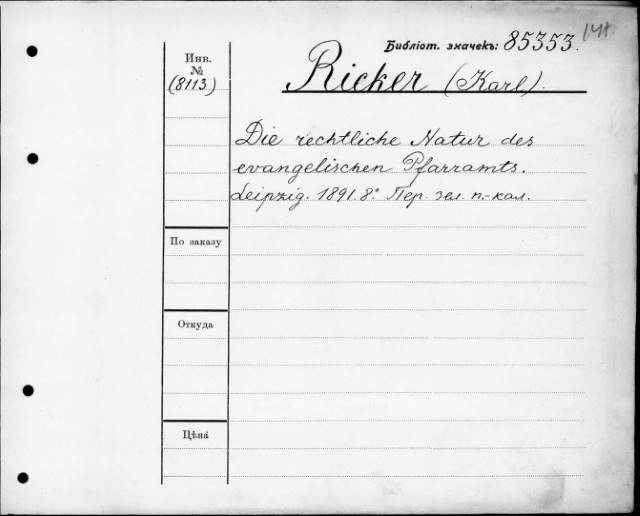 Библіот. значекъ: 85353.
Инв.
№
(8113)
Ricker (Karl).
Die rechtliche Natur des
evangelischen Pfarramts.
Leipzig. 1891. 8° Пер. зел. п.-кал.
По заказу
Откуда
Цѣна